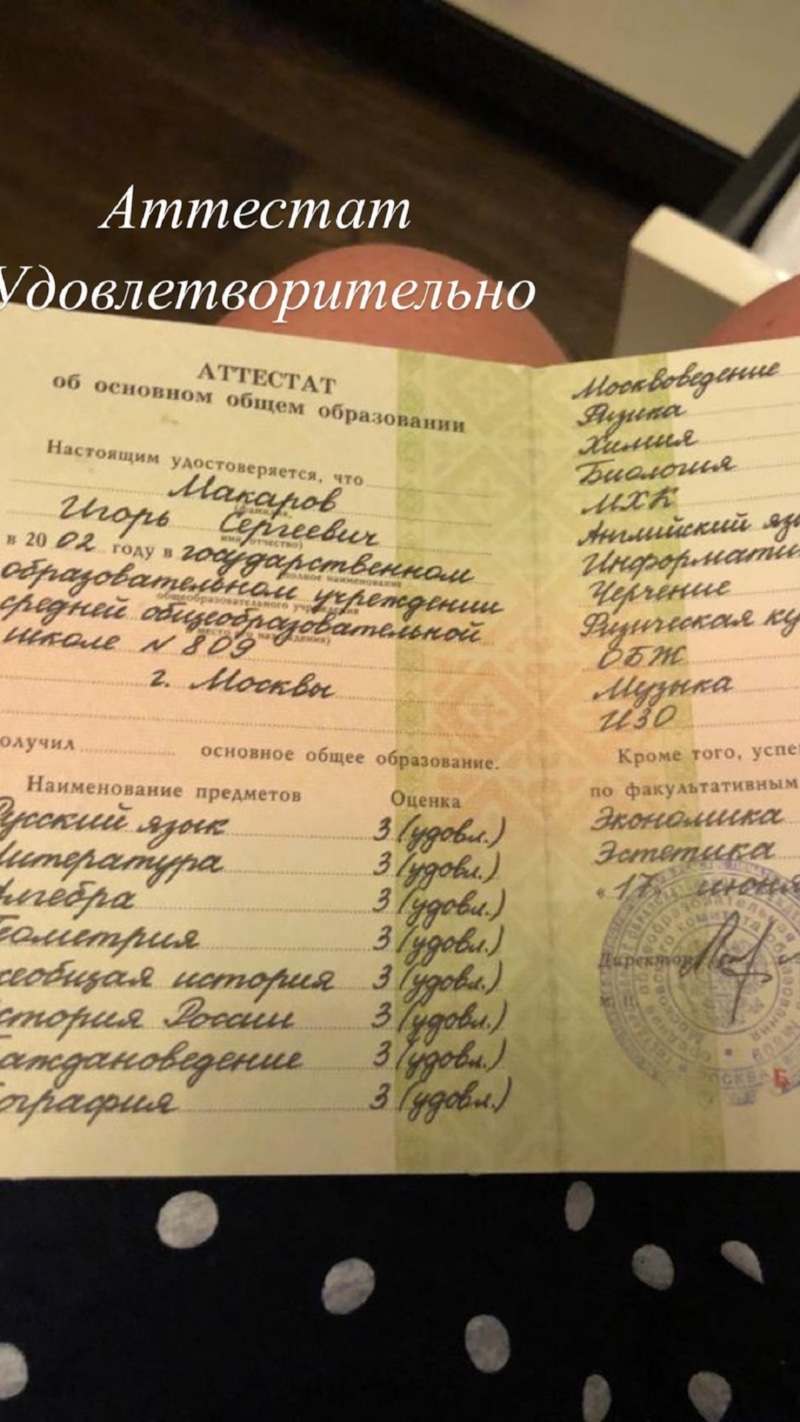 Аттестат
Удовлетворительно
АТТЕСТАТ
об основном общем образовании
Настоящим удостоверяется, что
Макаров
Игорь Сергеевич
в 2002 году в государственном
образовательном учреждении
средней общеобразовательной
школе N 809
г. Москвы
олучил основное общее образование.
Наименование предметов Оценка
Русский язык 3 (удовл.)
Литература 3 (удовл.)
Алгебра 3 (удовл.)
Геометрия 3 (удовл.)
сеобщая история 3 (удовл.)
стория России 3 (удовл.)
раждановедение 3 (удовл.)
ография 3 (удовл.)
Москвоведение
Физика
Химия
Биология
МХК
Английский язы
Информати
Черчение
Физическая ку
ОБЖ
Музыка
ИЗО
Кроме того, успе
по факультативным
Экономика
Эстетика
« 17 июня
Директор